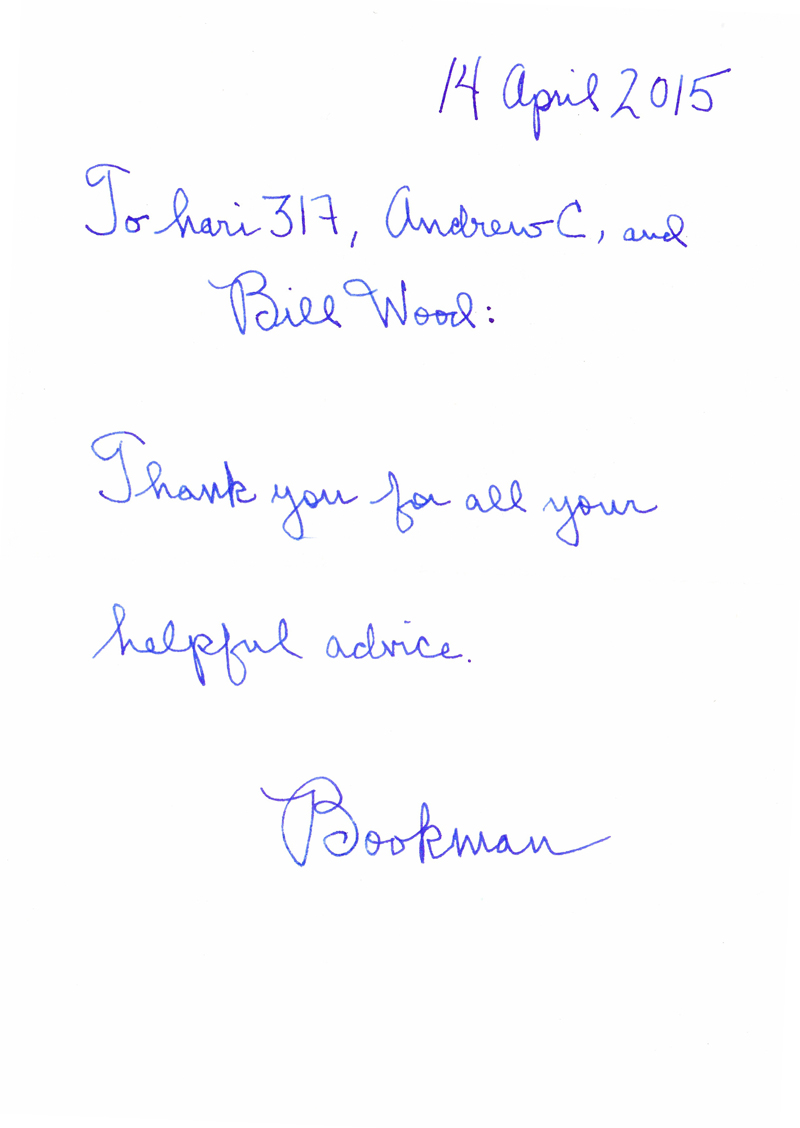 14 April 2015
To hari317, AndrewC, and
Bill Wood:
Thank you for all your
helpful advice.
Bookman